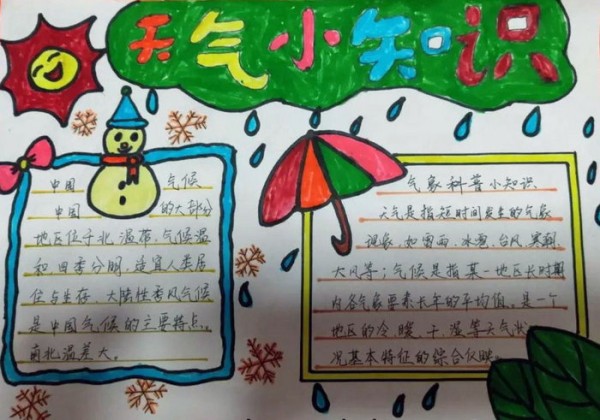 天气小知识
中国 气候
中国 的大部分
地区位于北温带，气候温
和，四季分明，适宜人类居
住与生存。大陆性季风气候
是中国气候的主要特点。
南北温差大。
气象科普小知识
天气是指短时间发生的气象
现象，如雷雨、冰雹、台风、寒潮、
大风等；气候是指某一地区长时期
内各气象要素长年的平均值。是一个
地区的冷、暖、干、湿等天气状
况基本特征的综合